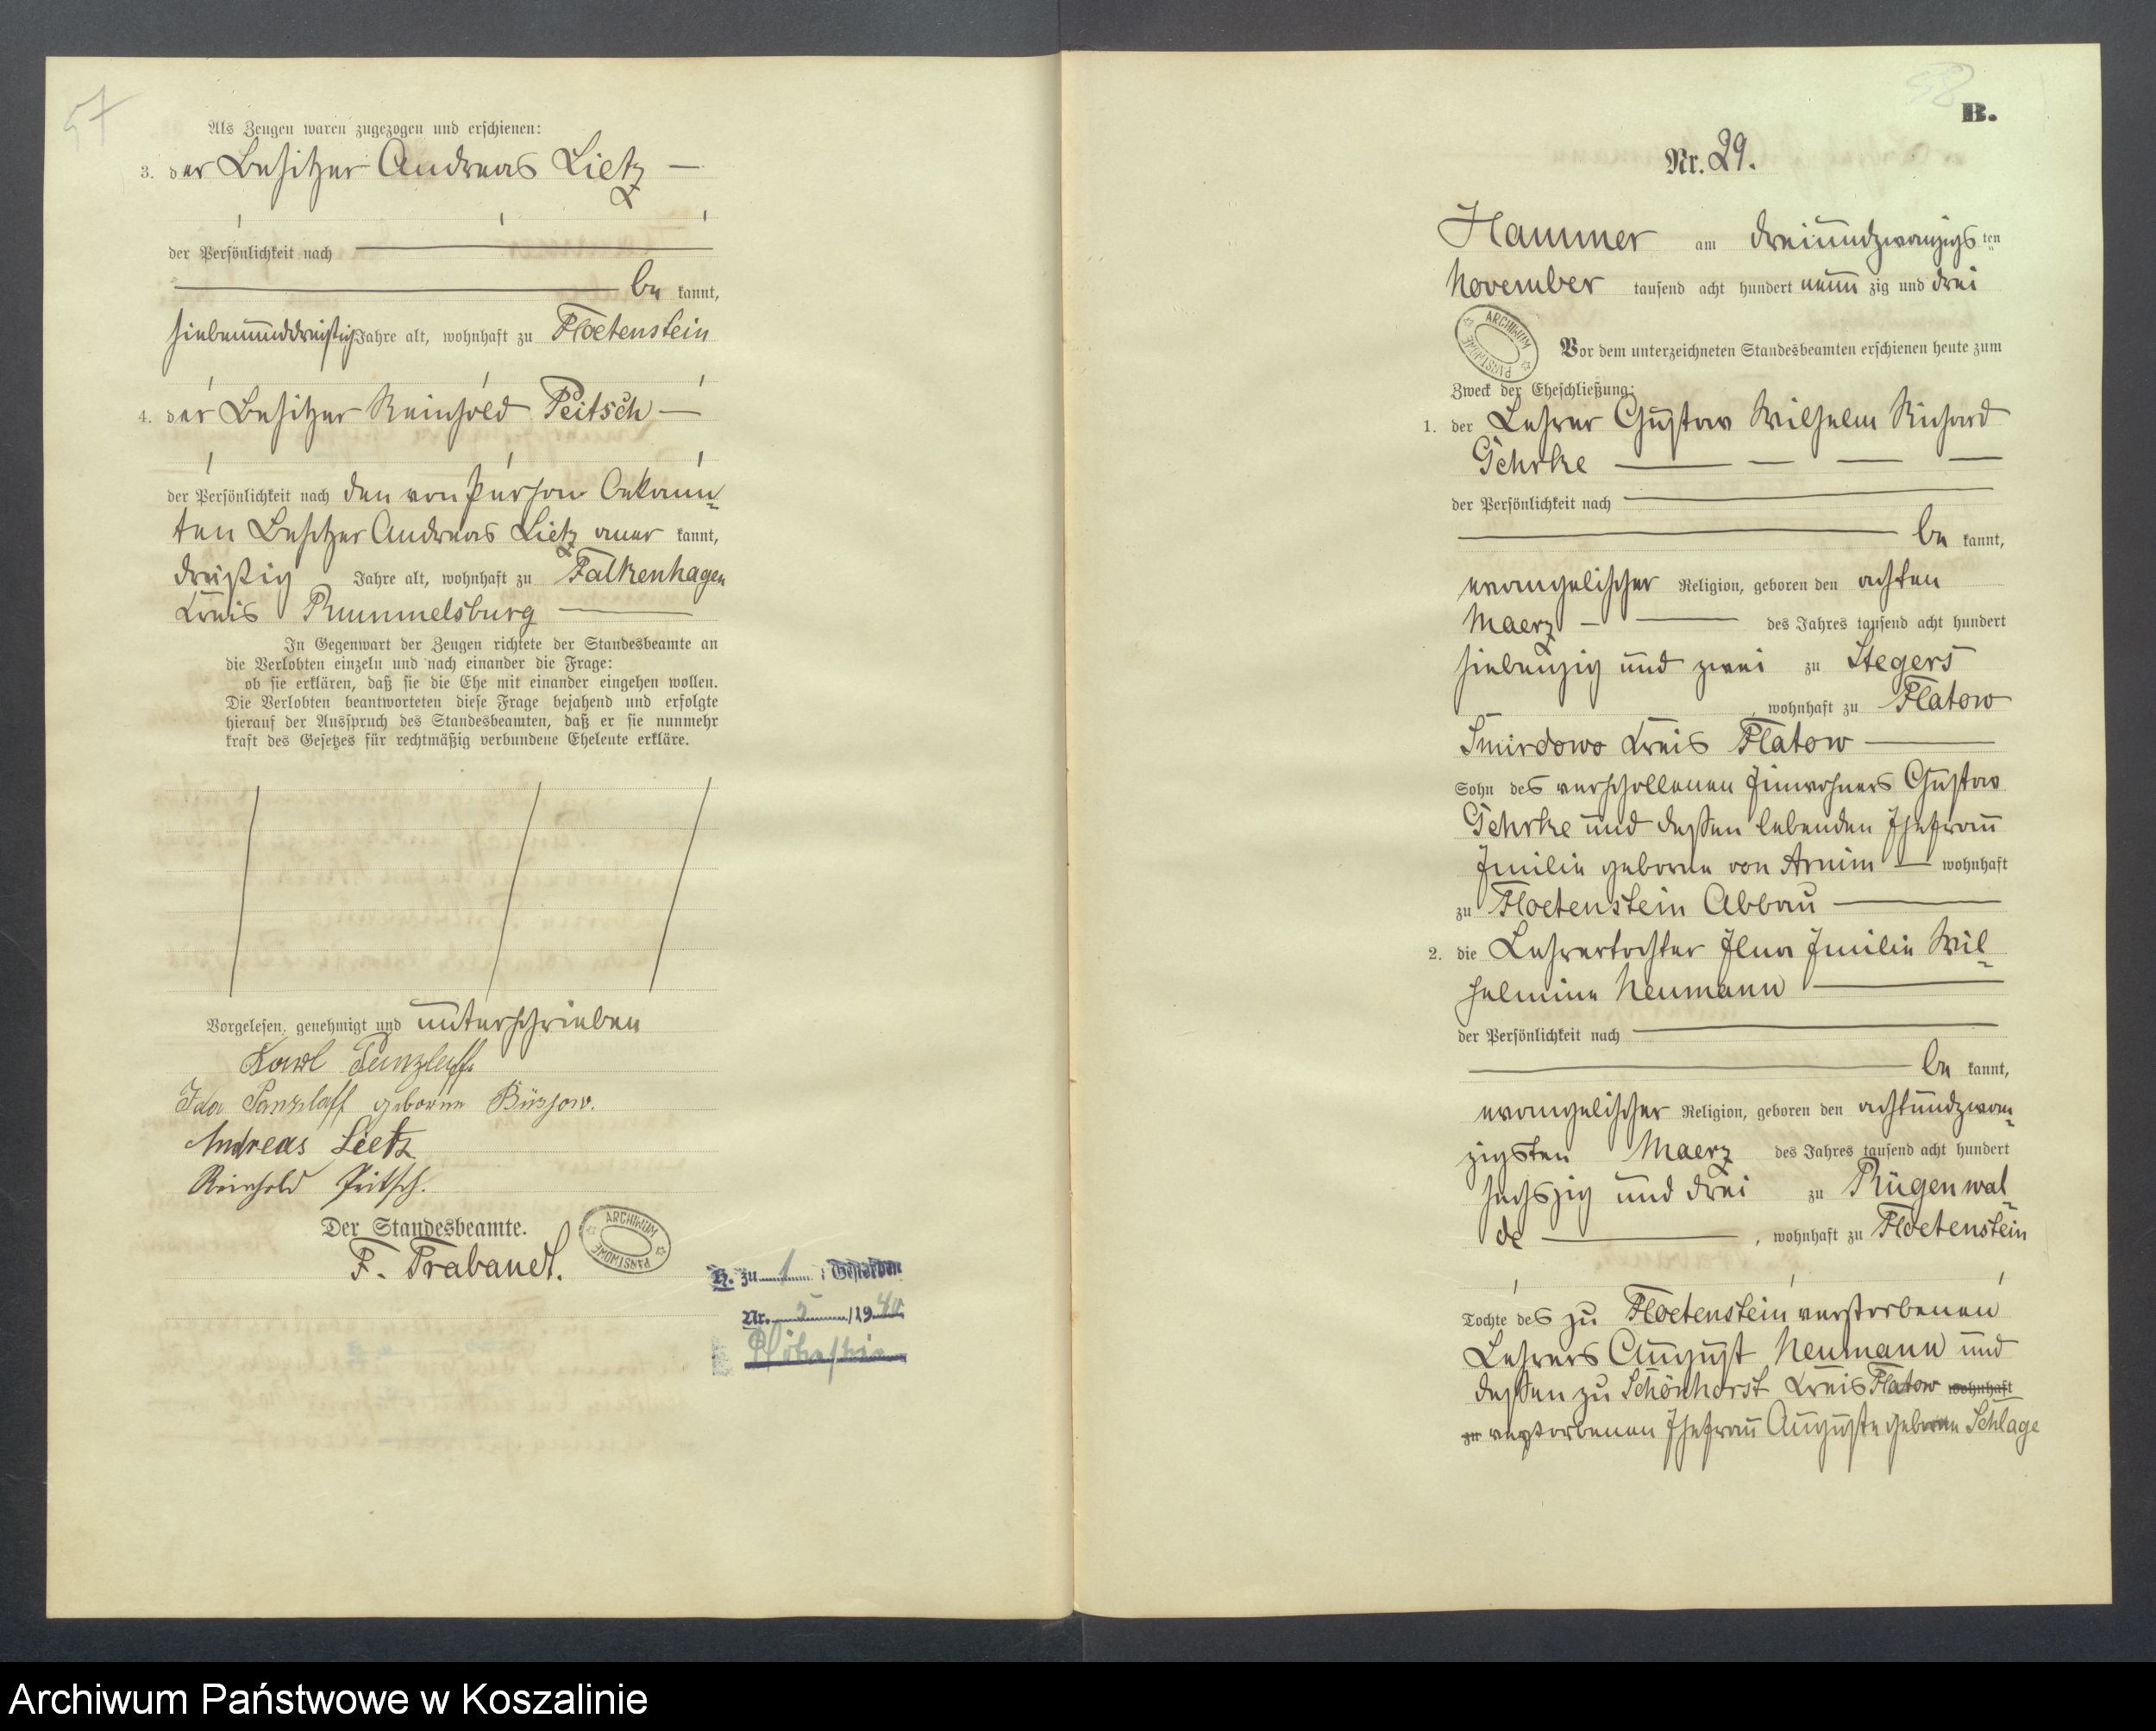 57
Als Zeugen waren zugezogen und erschienen:
3. der Besitzer Andreas Lietz
der Persönlichkeit nach
be kannt,
siebenunddreißig Jahre alt, wohnhaft zu Floetenstein
4. der Besitzer Reinhold Peitsch
der Persönlichkeit nach den von Person bekann-
ten Besitzer Andreas Lietz aner kannt,
dreißig Jahre alt, wohnhaft zu Falkenhagen
Kreis Rummelsburg
In Gegenwart der Zeugen richtete der Standesbeamte an
die Verlobten einzeln und nach einander die Frage:
ob sie erklären, daß sie die Ehe mit einander eingehen wollen.
Die Verlobten beantworteten diese Frage bejahend und erfolgte
hierauf der Ausspruch des Standesbeamten, daß er sie nunmehr
kraft des Gesetzes für rechtmäßig verbundene Eheleute erkläre.
Vorgelesen, genehmigt und unterschrieben
Karl Panzlaff
Ida Panzlaff geborne Büssow.
Andreas Lietz
Reinhold Peitsch.
Der Standesbeamte.
F. Trabandt.
ARCHIWUM PAŃSTWOWE
H. zu 1 : Gestorben
Nr. 5 /1940
Flötenstein
58
B.
Nr. 29.
Hammer am dreiundzwanzigsten
November tausend acht hundert neun zig und drei
ARCHIWUM PAŃSTWOWE
Vor dem unterzeichneten Standesbeamten erschienen heute zum
Zweck der Eheschließung:
1. der Lehrer Gustav Wilhelm Richard
Gehrke
der Persönlichkeit nach
be kannt,
evangelischer Religion, geboren den achten
Maerz des Jahres tausend acht hundert
siebenzig und zwei zu Stegers
, wohnhaft zu Flatow
Smirdowo Kreis Flatow
Sohn des verschollenen Einwohners Gustav
Gehrke und dessen lebenden Ehefrau
Emilie geborne von Arnim wohnhaft
zu Floetenstein Abbau
2. die Lehrertochter Elma Emilie Wil-
helmine Neumann
der Persönlichkeit nach
be kannt,
evangelischer Religion, geboren den achtundzwan-
zigsten Maerz des Jahres tausend acht hundert
sechszig und drei zu Rügenwal-
de , wohnhaft zu Floetenstein
Tochte des zu Floetenstein verstorbenen
Lehrers August Neumann und
dessen zu Schönhorst Kreis Flatow wohnhaft
zu verstorbenen Ehefrau Auguste geborne Schlage
Archiwum Państwowe w Koszalinie